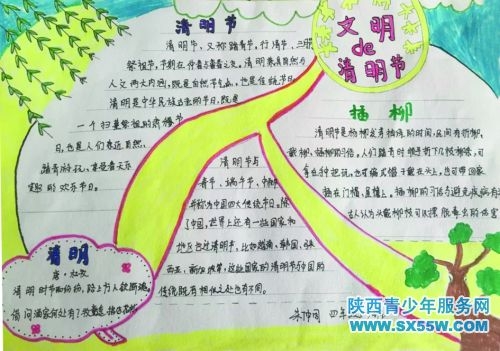 清明节
清明节，又称踏青节，行清节，三月节，
祭祖节，节期在仲春与暮春之交。清明兼具自然与
人文两大内涵，既是自然节气点，也是传统节日。
清明是中华民族古老节日，既是
一个扫墓祭祖的肃穆节
日，也是人们亲近自然，
踏青游玩，享受春天乐
趣的欢乐节日。
文明
de
清明节
插柳
清明是杨柳发芽抽绿的时间，民间有折柳、
戴柳、插柳的习俗。人们踏青时顺手折下几枝柳条，可
拿在手中把玩，也可编成帽子戴在头上，也可带回家
插在门楣、屋檐上。插柳的习俗与避免疾病有
古人认为头戴柳枝可以摆脱毒虫的伤害
清明节与
春节、端午节、中秋
并称为中国四大传统节日。除
了中国，世界上还有一些国家和
地区也过清明节，比如越南、韩国、马来
西亚、新加坡等，这些国家的清明节与中国的
传统既有相似之处也有不同。
清明
唐·杜牧
清明时节雨纷纷，路上行人欲断魂。
借问酒家何处有？牧童遥指杏花村
四年
陕西青少年服务网
www.sx55w.com